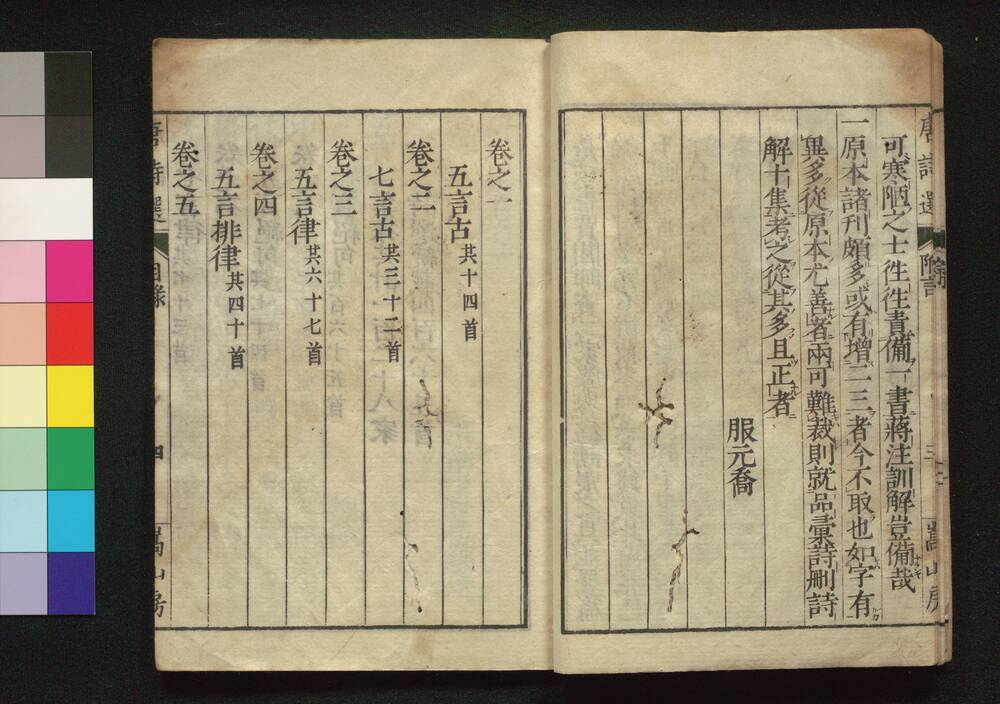 唐詩選 附言 三 嵩山房
可寒陋之士徃徃責備一書蔣注訓解豈備哉
一原本諸刊頗多或有增一二三者今不取也如字有
異多從原本尤善者兩可難裁則就品彙詩刪詩
解十集考之從其多且正者
服元喬
卷之一
五言古共十四首
卷之二
七言古共三十二首
卷之三
五言律共六十七首
卷之四
五言排律共四十首
卷之五
唐詩選 目錄 四 嵩山房